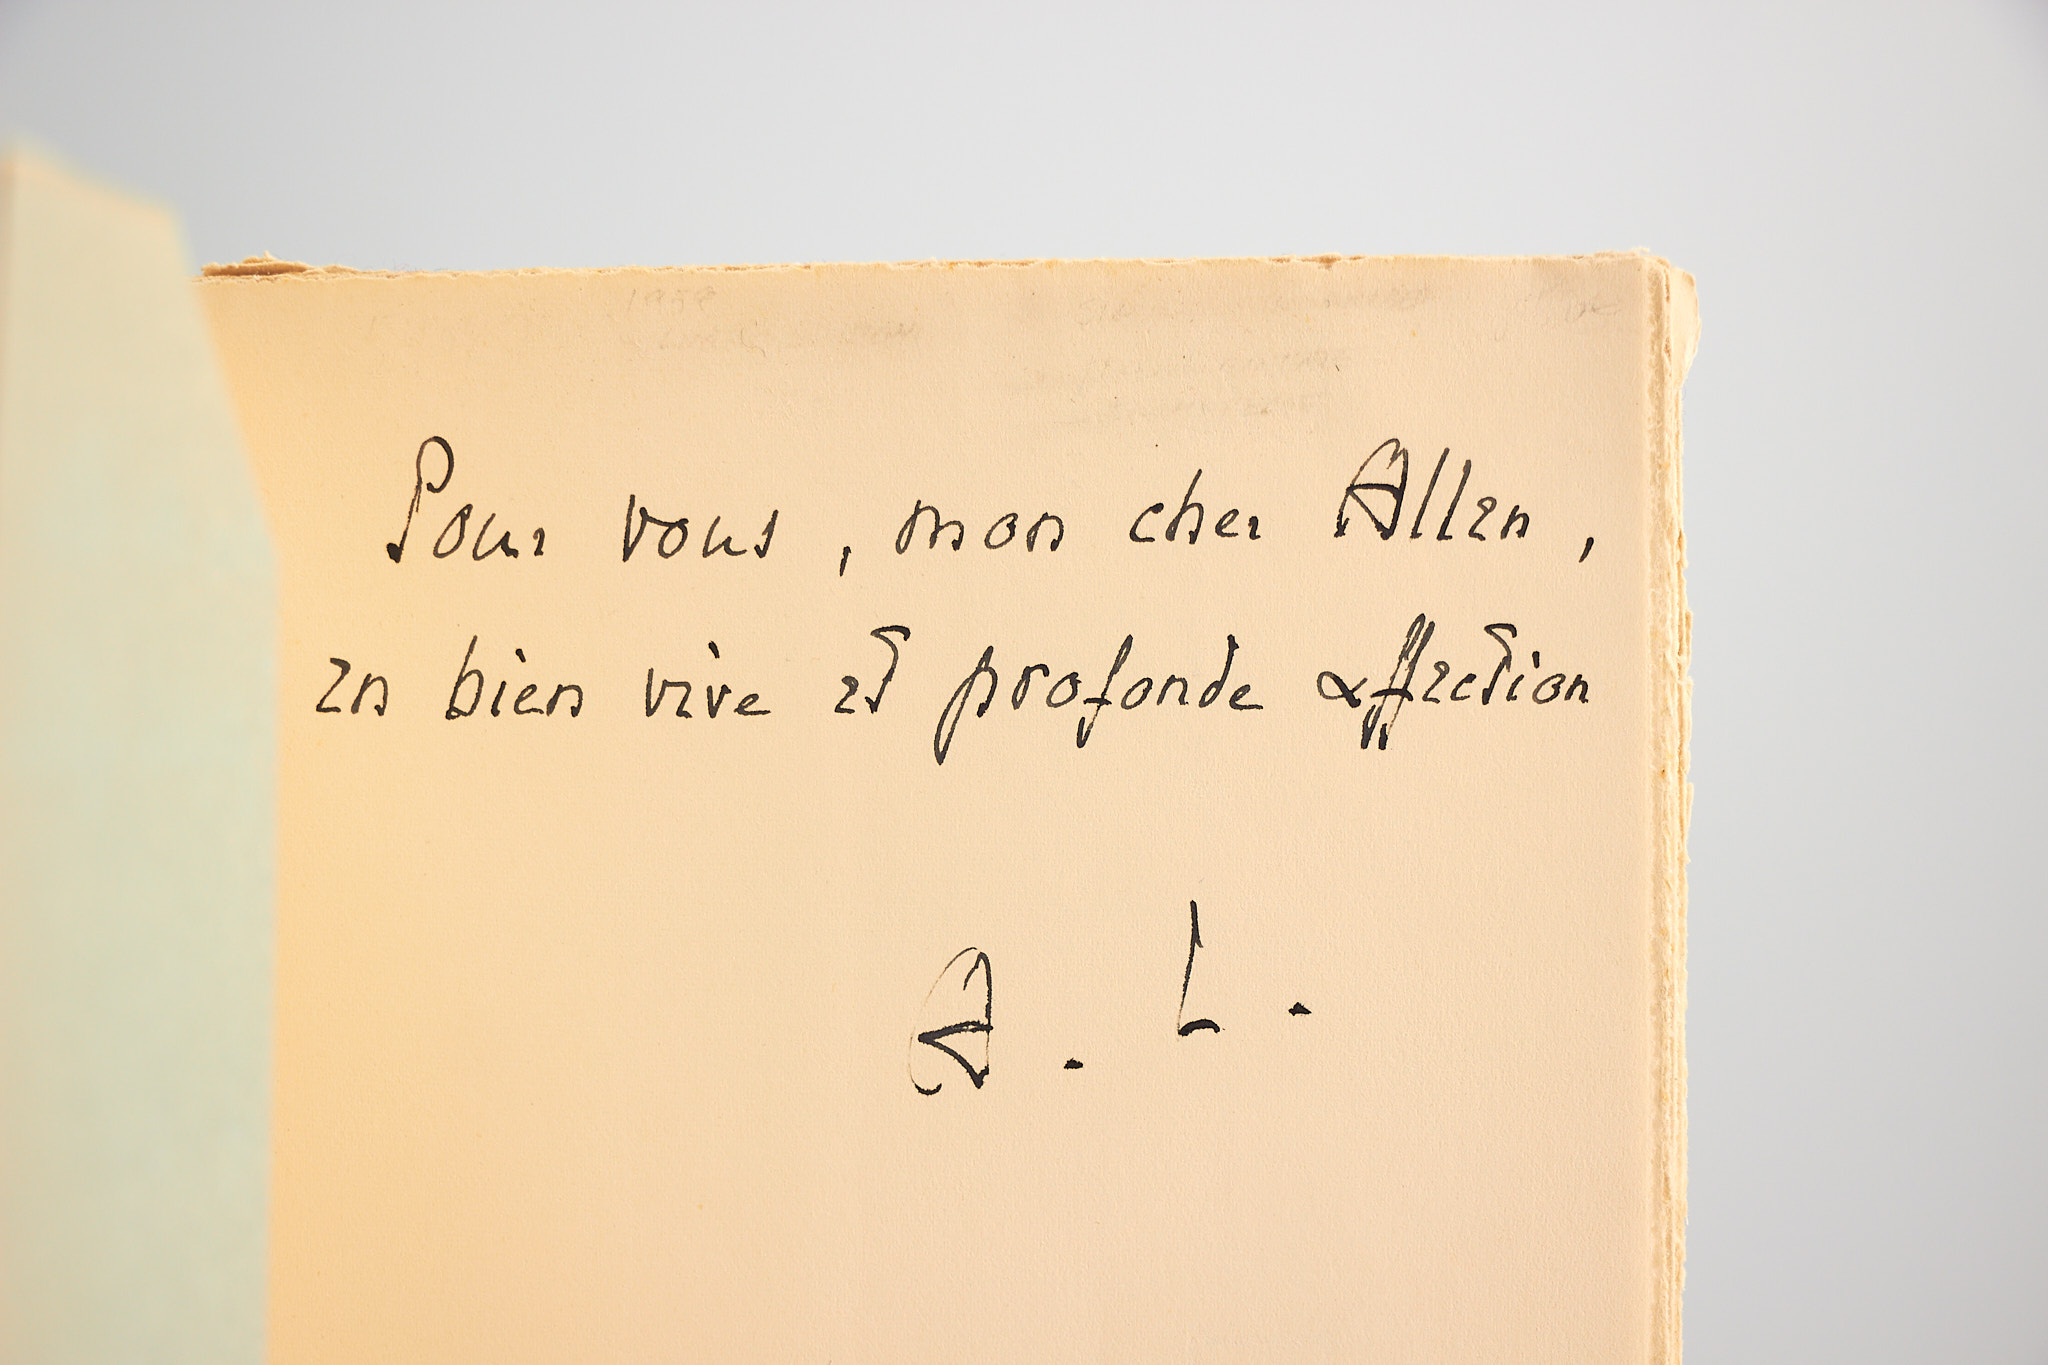 Pour vous, mon cher Allen,
en bien vive et profonde affection
A. L.